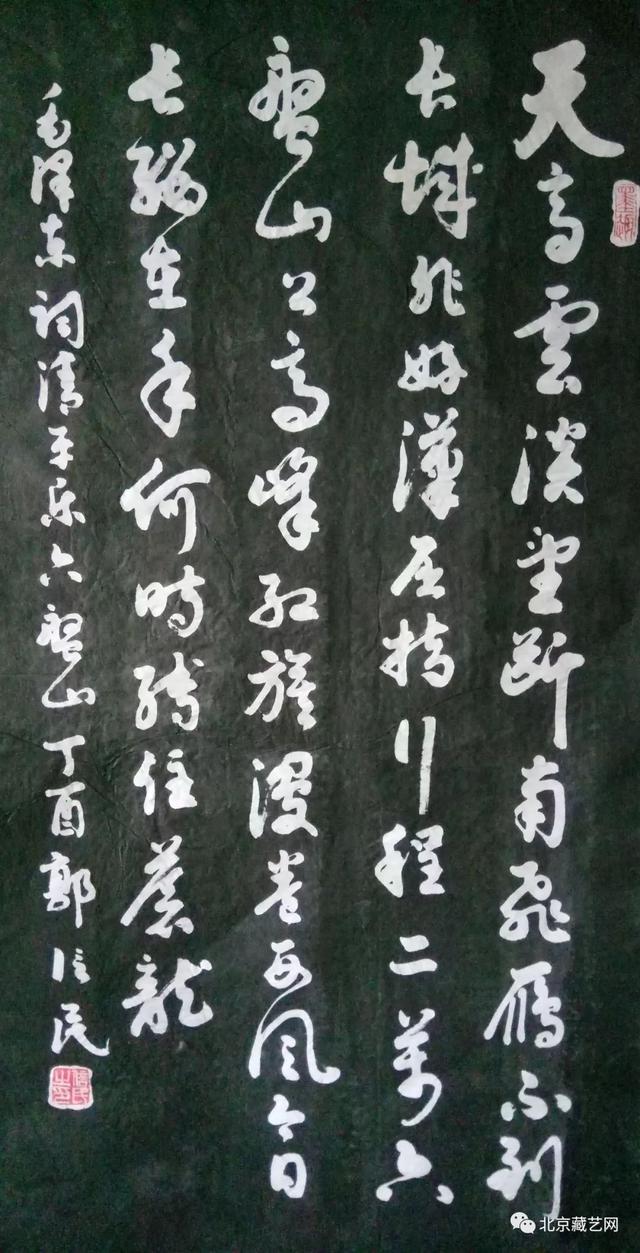 天高雲淡望斷南飛雁不到
长城非好漢屈指行程二萬六
盤山上高峰红旗漫卷西风今日
长缨在手何時縛住蒼龍
毛泽东词清平乐六盤山丁酉郭信民
信民之印
北京藏艺网